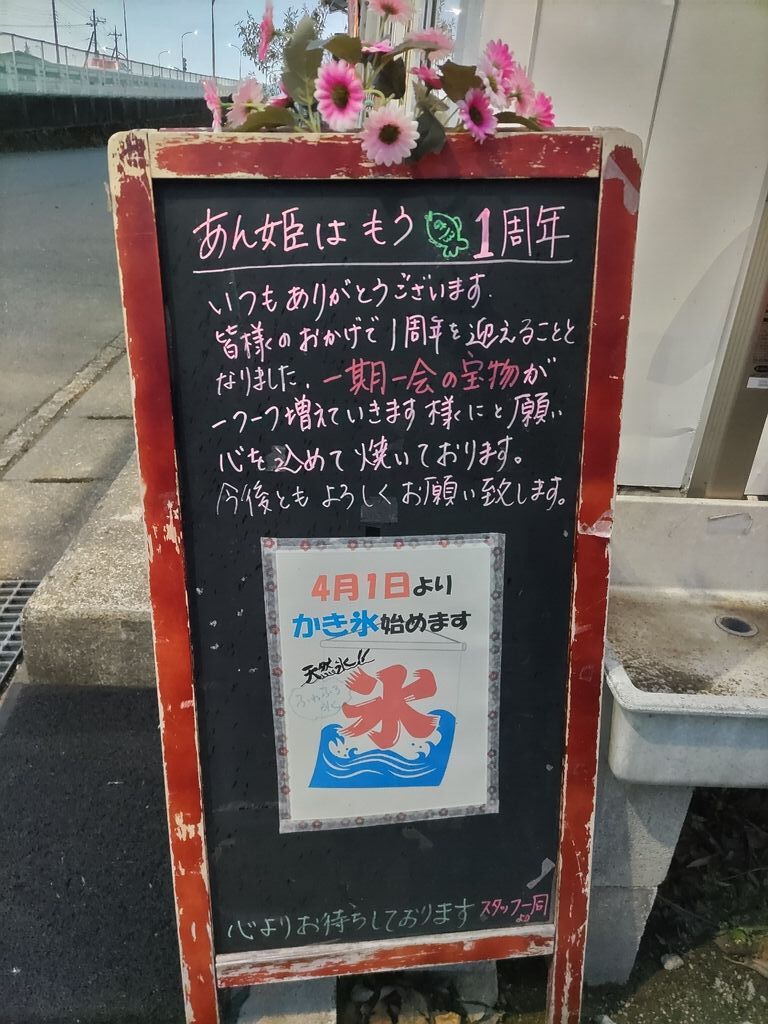 あん姫は もう 1周年
いつもありがとうございます.
皆様のおかげで1周年を迎えることと
なりました. 一期一会の宝物が
一つ一つ増えていきます様にと願い
心を込めて焼いております。
今後ともよろしくお願い致します。
4月1日より
かき氷始めます
天然氷!!
ふわふわ
氷
心よりお待ちしております スタッフ一同
より